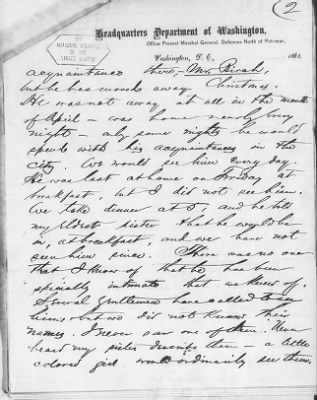 (2
Headquarters Department of Washington,
Office Provost Marshal General, Defences North of Potomac,
IN
NATIONAL ARCHIVES
OF THE
UNITED STATES
Washington, D. C., 186
acquaintance there, Mr.
but he has moved away Christmas.
He was not away at all in the month
of April – was home nearly every
night – only some nights he would
spend with his acquaintances in the
city. We would see him every day.
He was last at home on Friday at
breakfast, but I did not see him.
We take dinner at 5, and he told
my eldest sister that he would be
in, at breakfast, and we have not
seen him since. There was no one
that I know of that he has been
specially intimate that we knew of.
Several gentlemen have called to see
him, but we did not know their
names. I never saw one of them. I have
heard my sister describe them a little
colored girl would ordinarily see them,